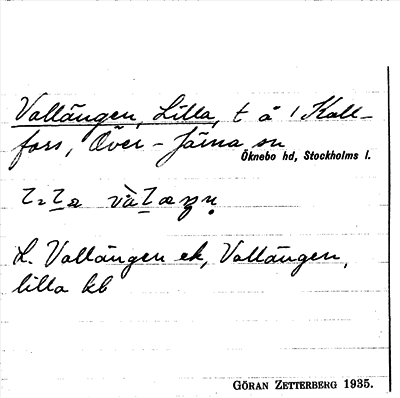 Vallängen, Lilla, t å 1 Kall-
fors, Över-Järna sn
Öknebo hd, Stockholms l.
L. Vallängen ek, Vallängen,
lilla kb
GÖRAN ZETTERBERG 1935.